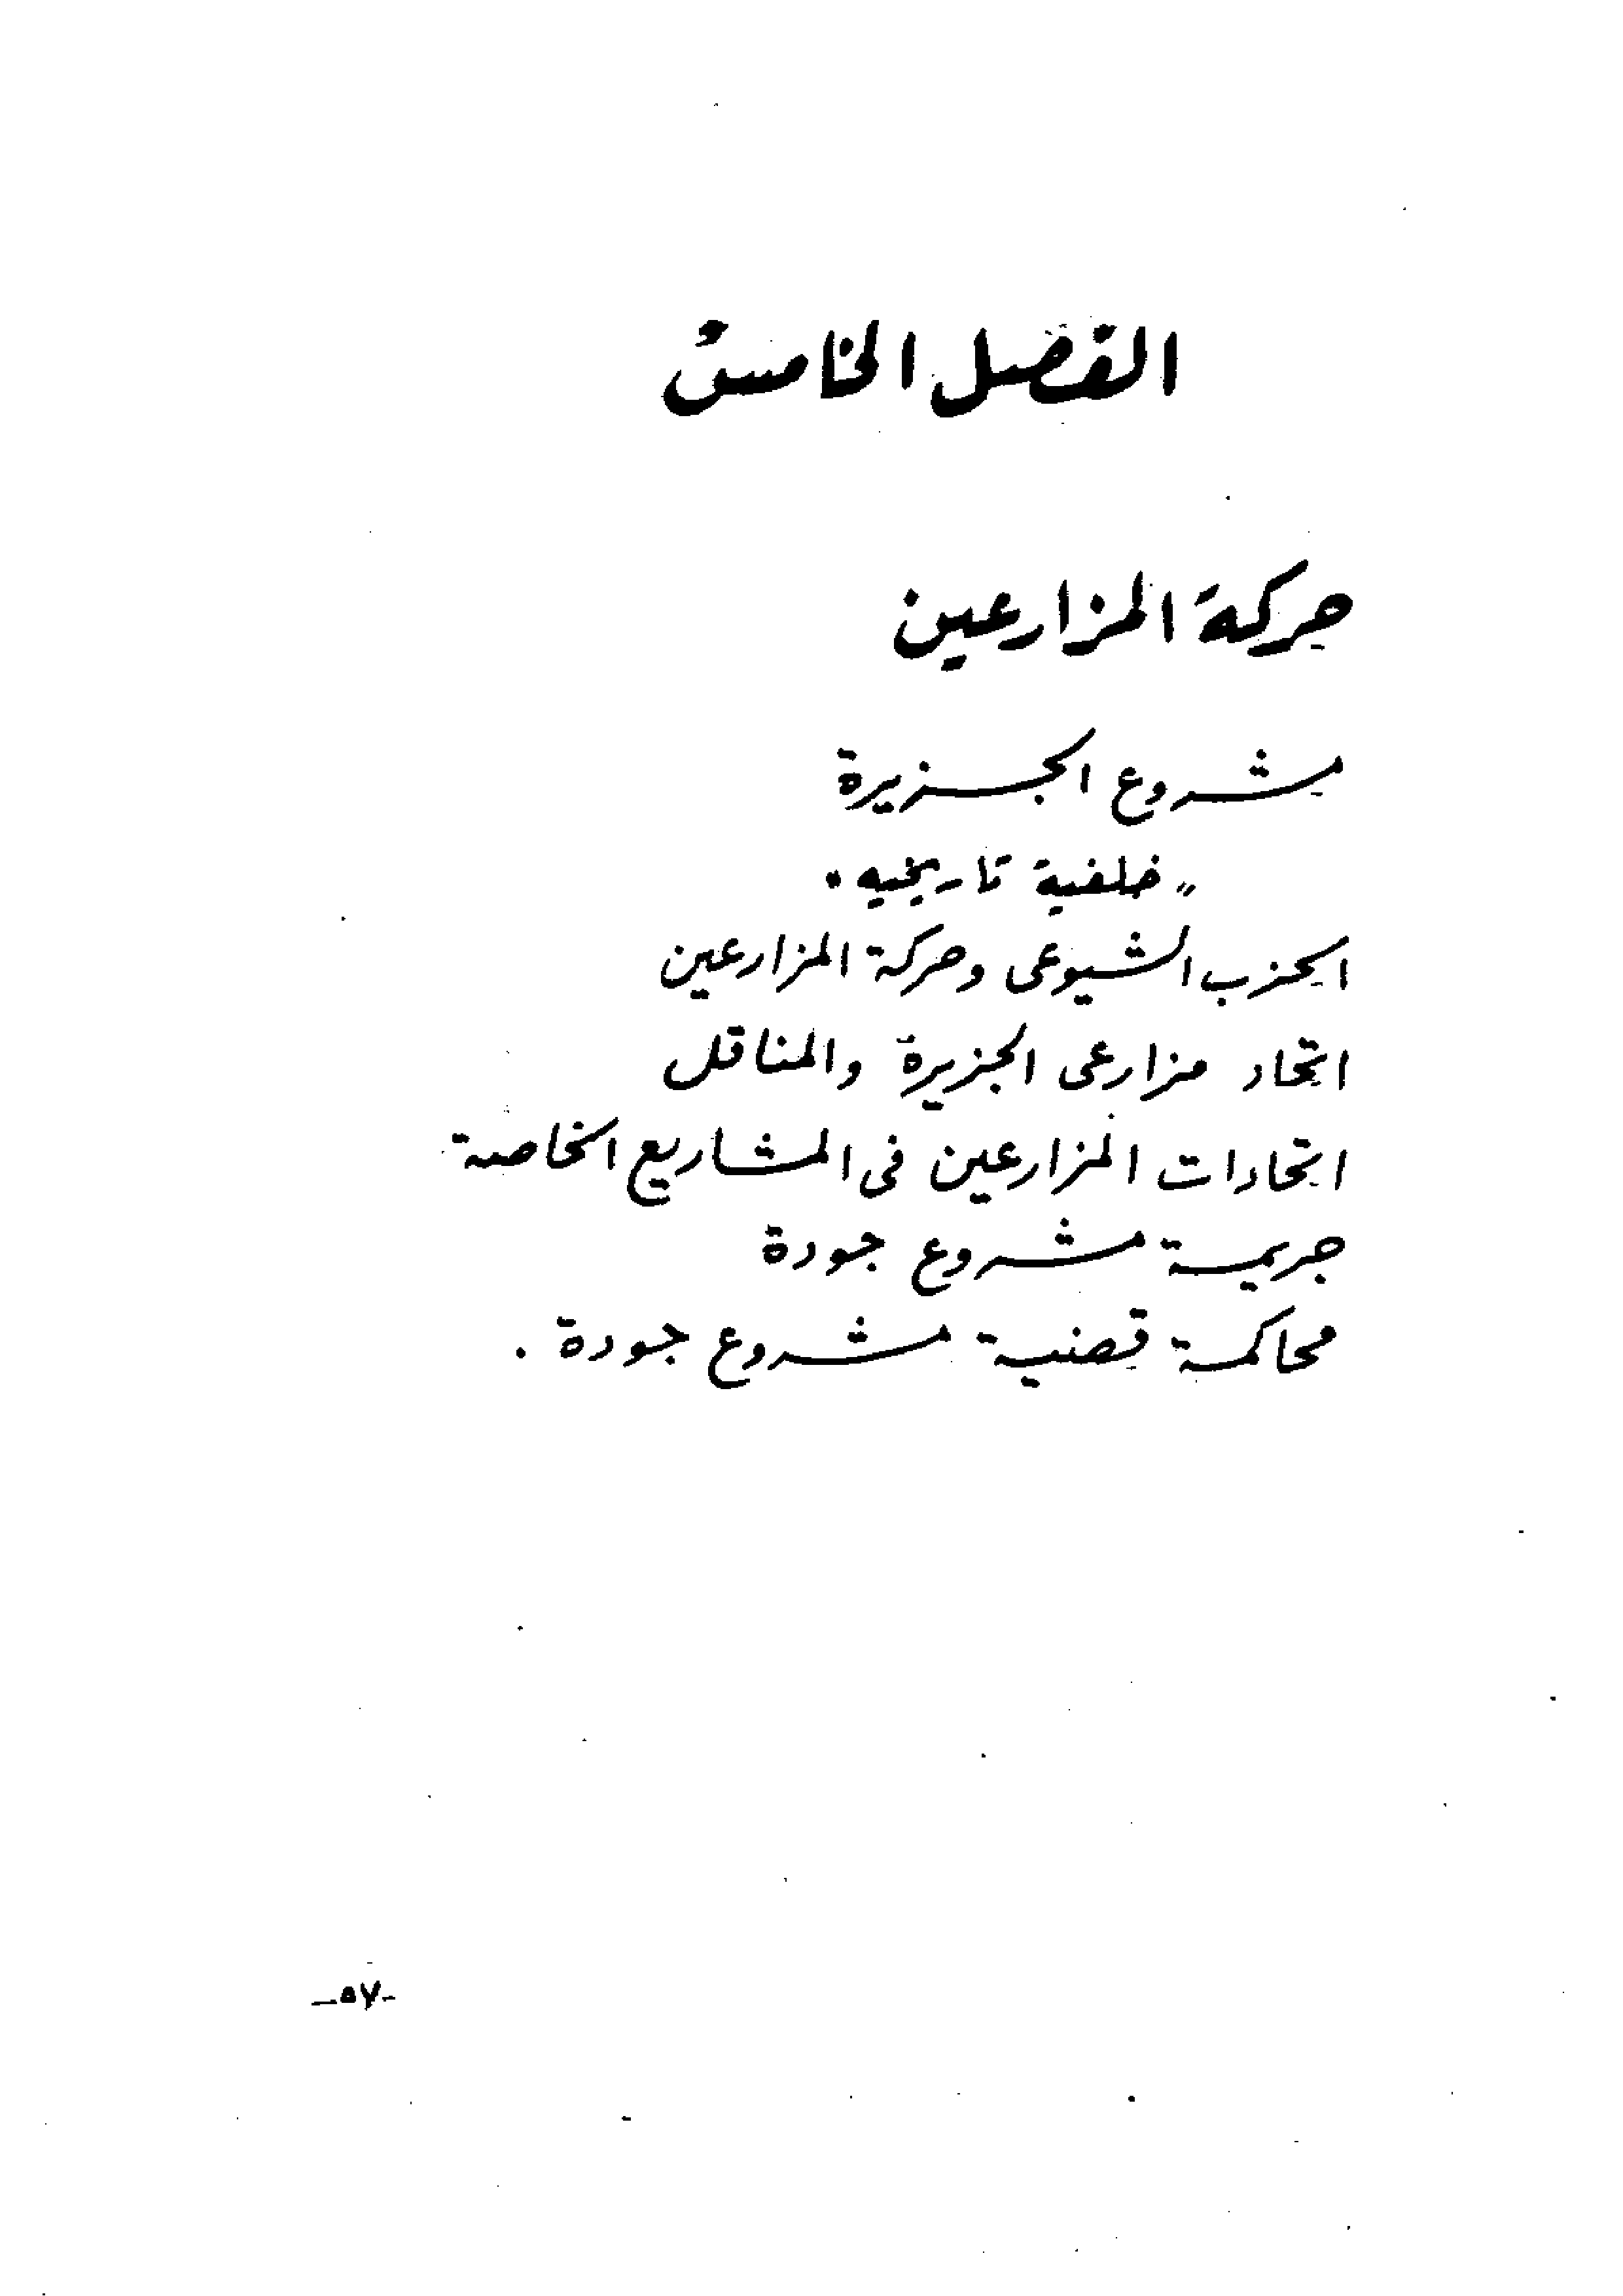 الفصل الخامس
حركة المزارعين
مشروع الجزيرة
"خلفية تاريخيه"
الحزب الشيوعى وحركة المزارعين
اتحاد مزارعى الجزيرة والمناقل
اتحادات المزارعين فى المشاريع الخاصة
جريمة مشروع جودة
محاكمة قضية مشروع جودة .
-٥٧-